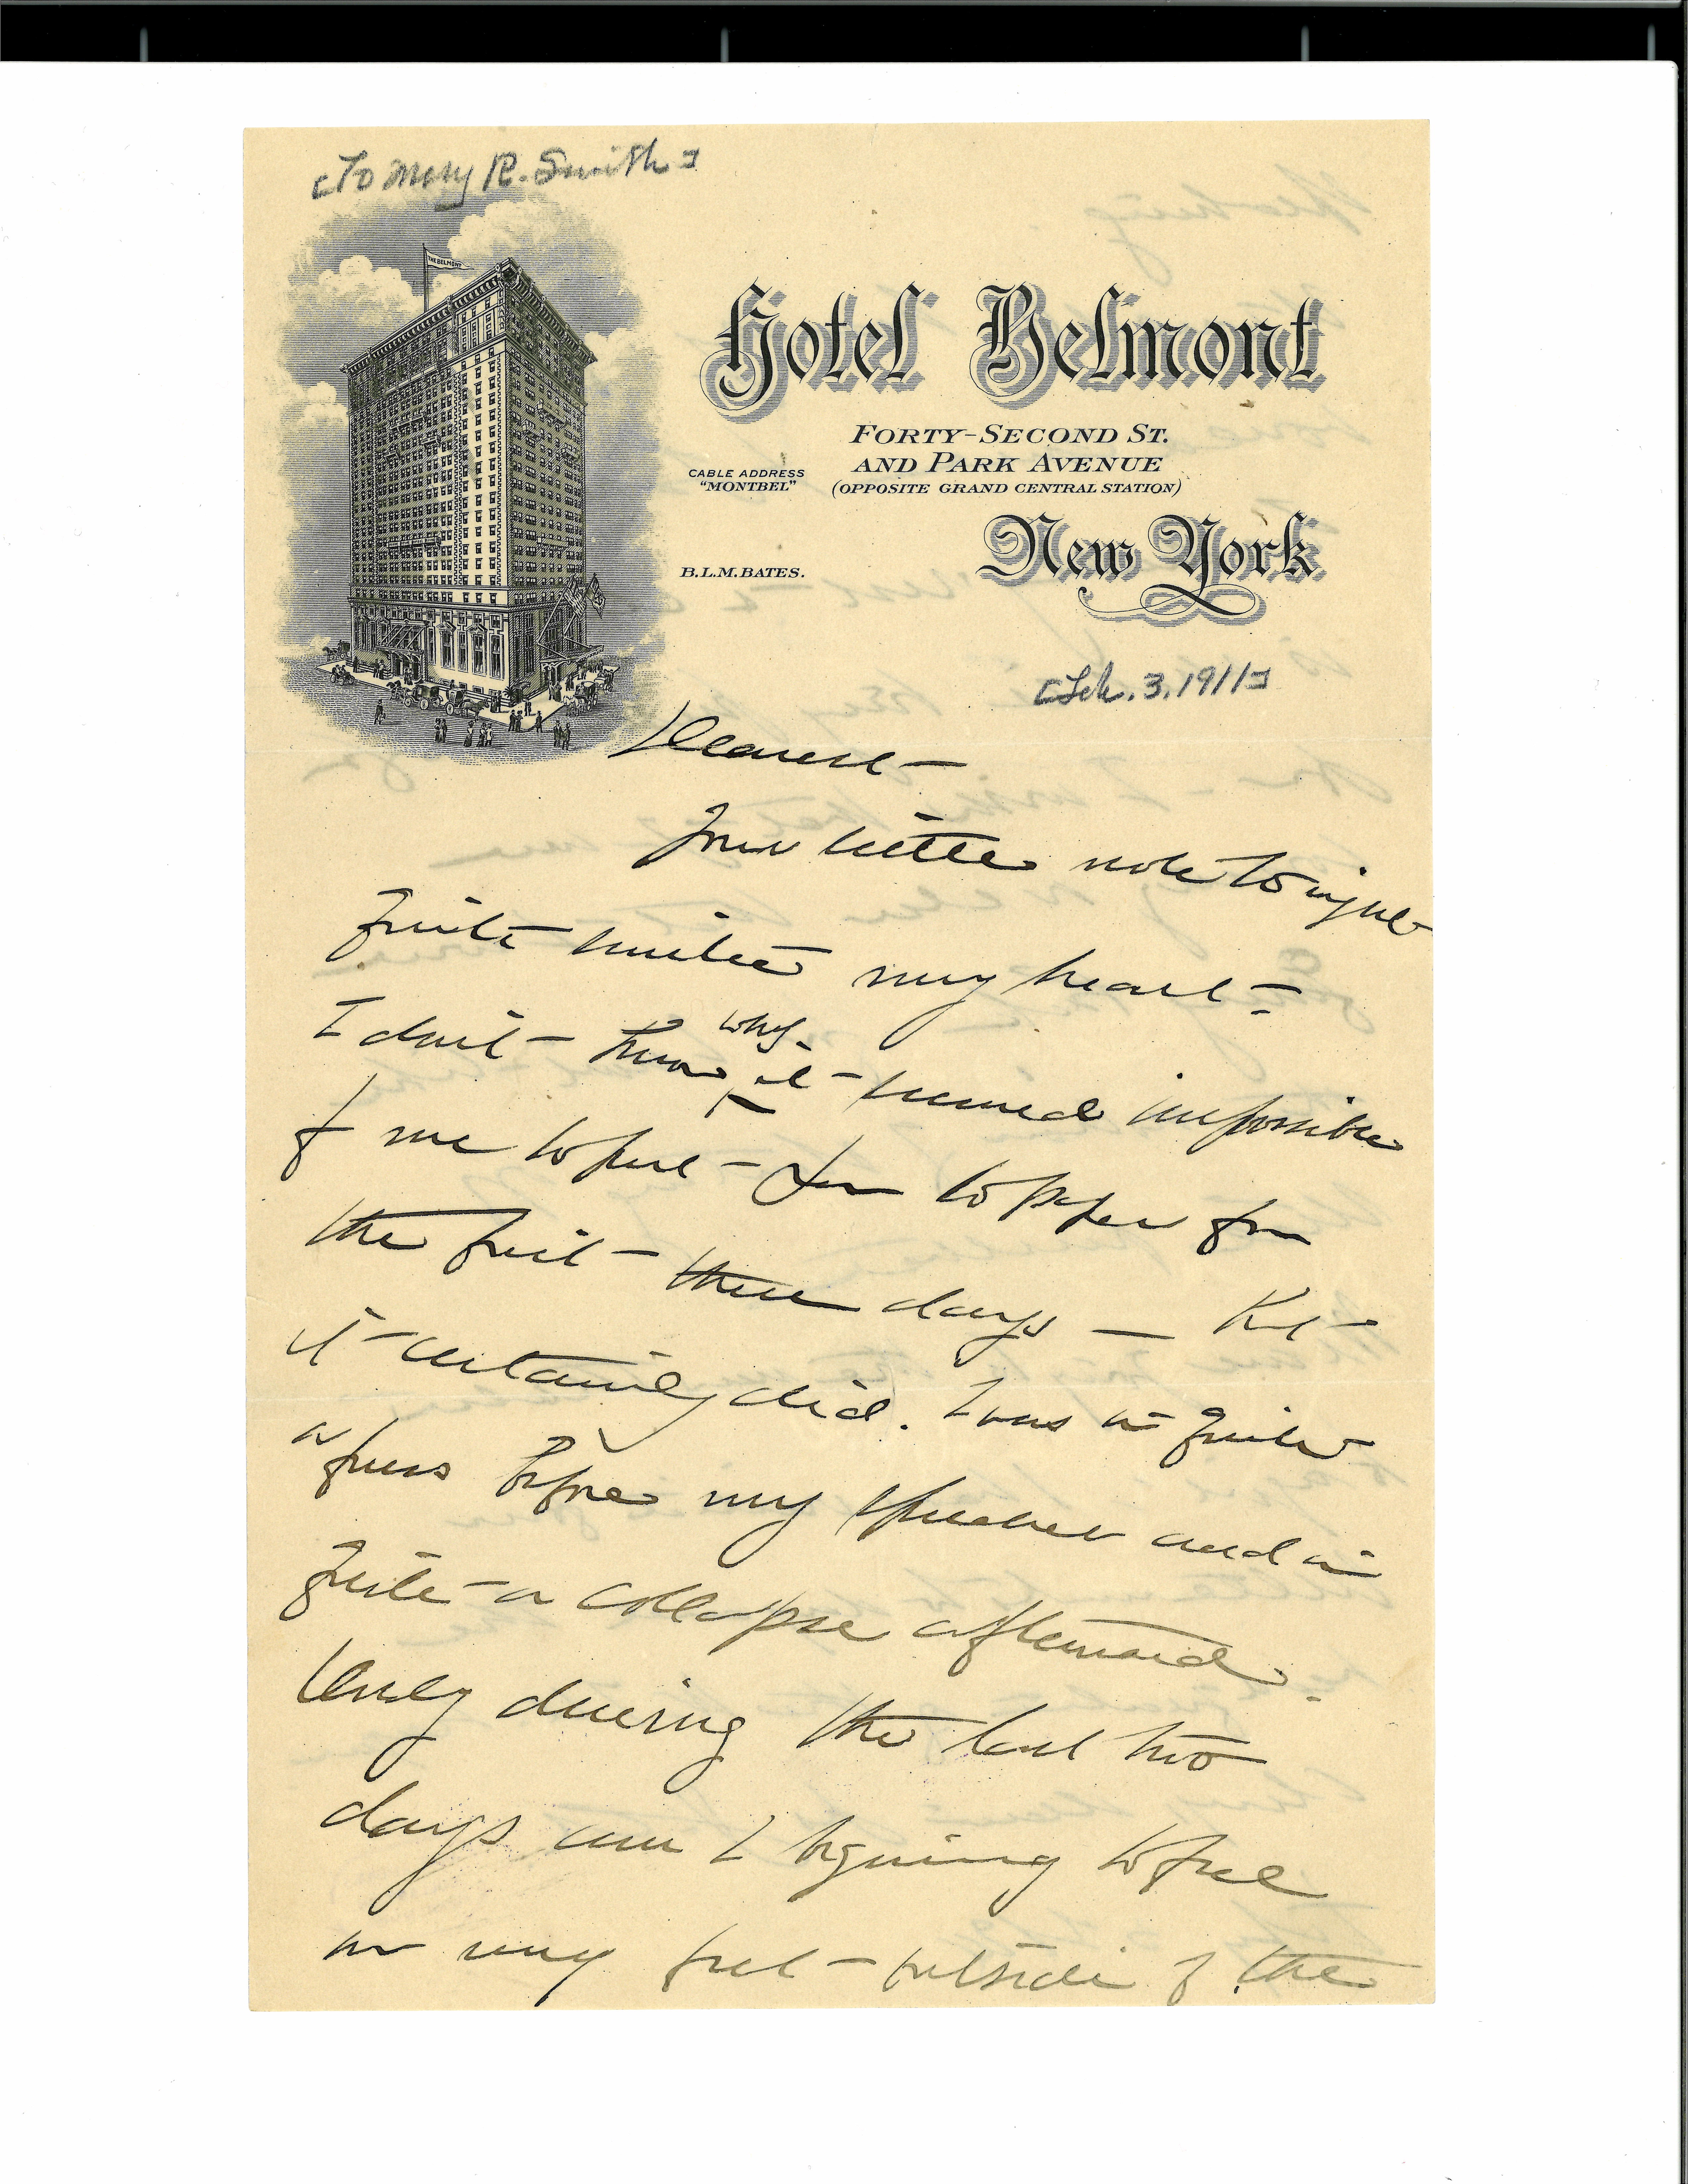 [To Mary R. Smith]
THE BELMONT
Hotel Belmont
FORTY-SECOND ST.
AND PARK AVENUE
CABLE ADDRESS
"MONTBEL"
(OPPOSITE GRAND CENTRAL STATION)
New York
B.L.M.BATES.
[Feb. 3. 1911]
Dearest -
Your little note tonight
quite smites my heart -
I don't - know why it - seemed impossible
of me to put - pen to paper for
the first - three days — But -
it certainly did. I was in quite
a fuss before my speeches and in
quite - a collapse afterward.
Only during the last two
days am I begining to feel
on my feet - outside of the